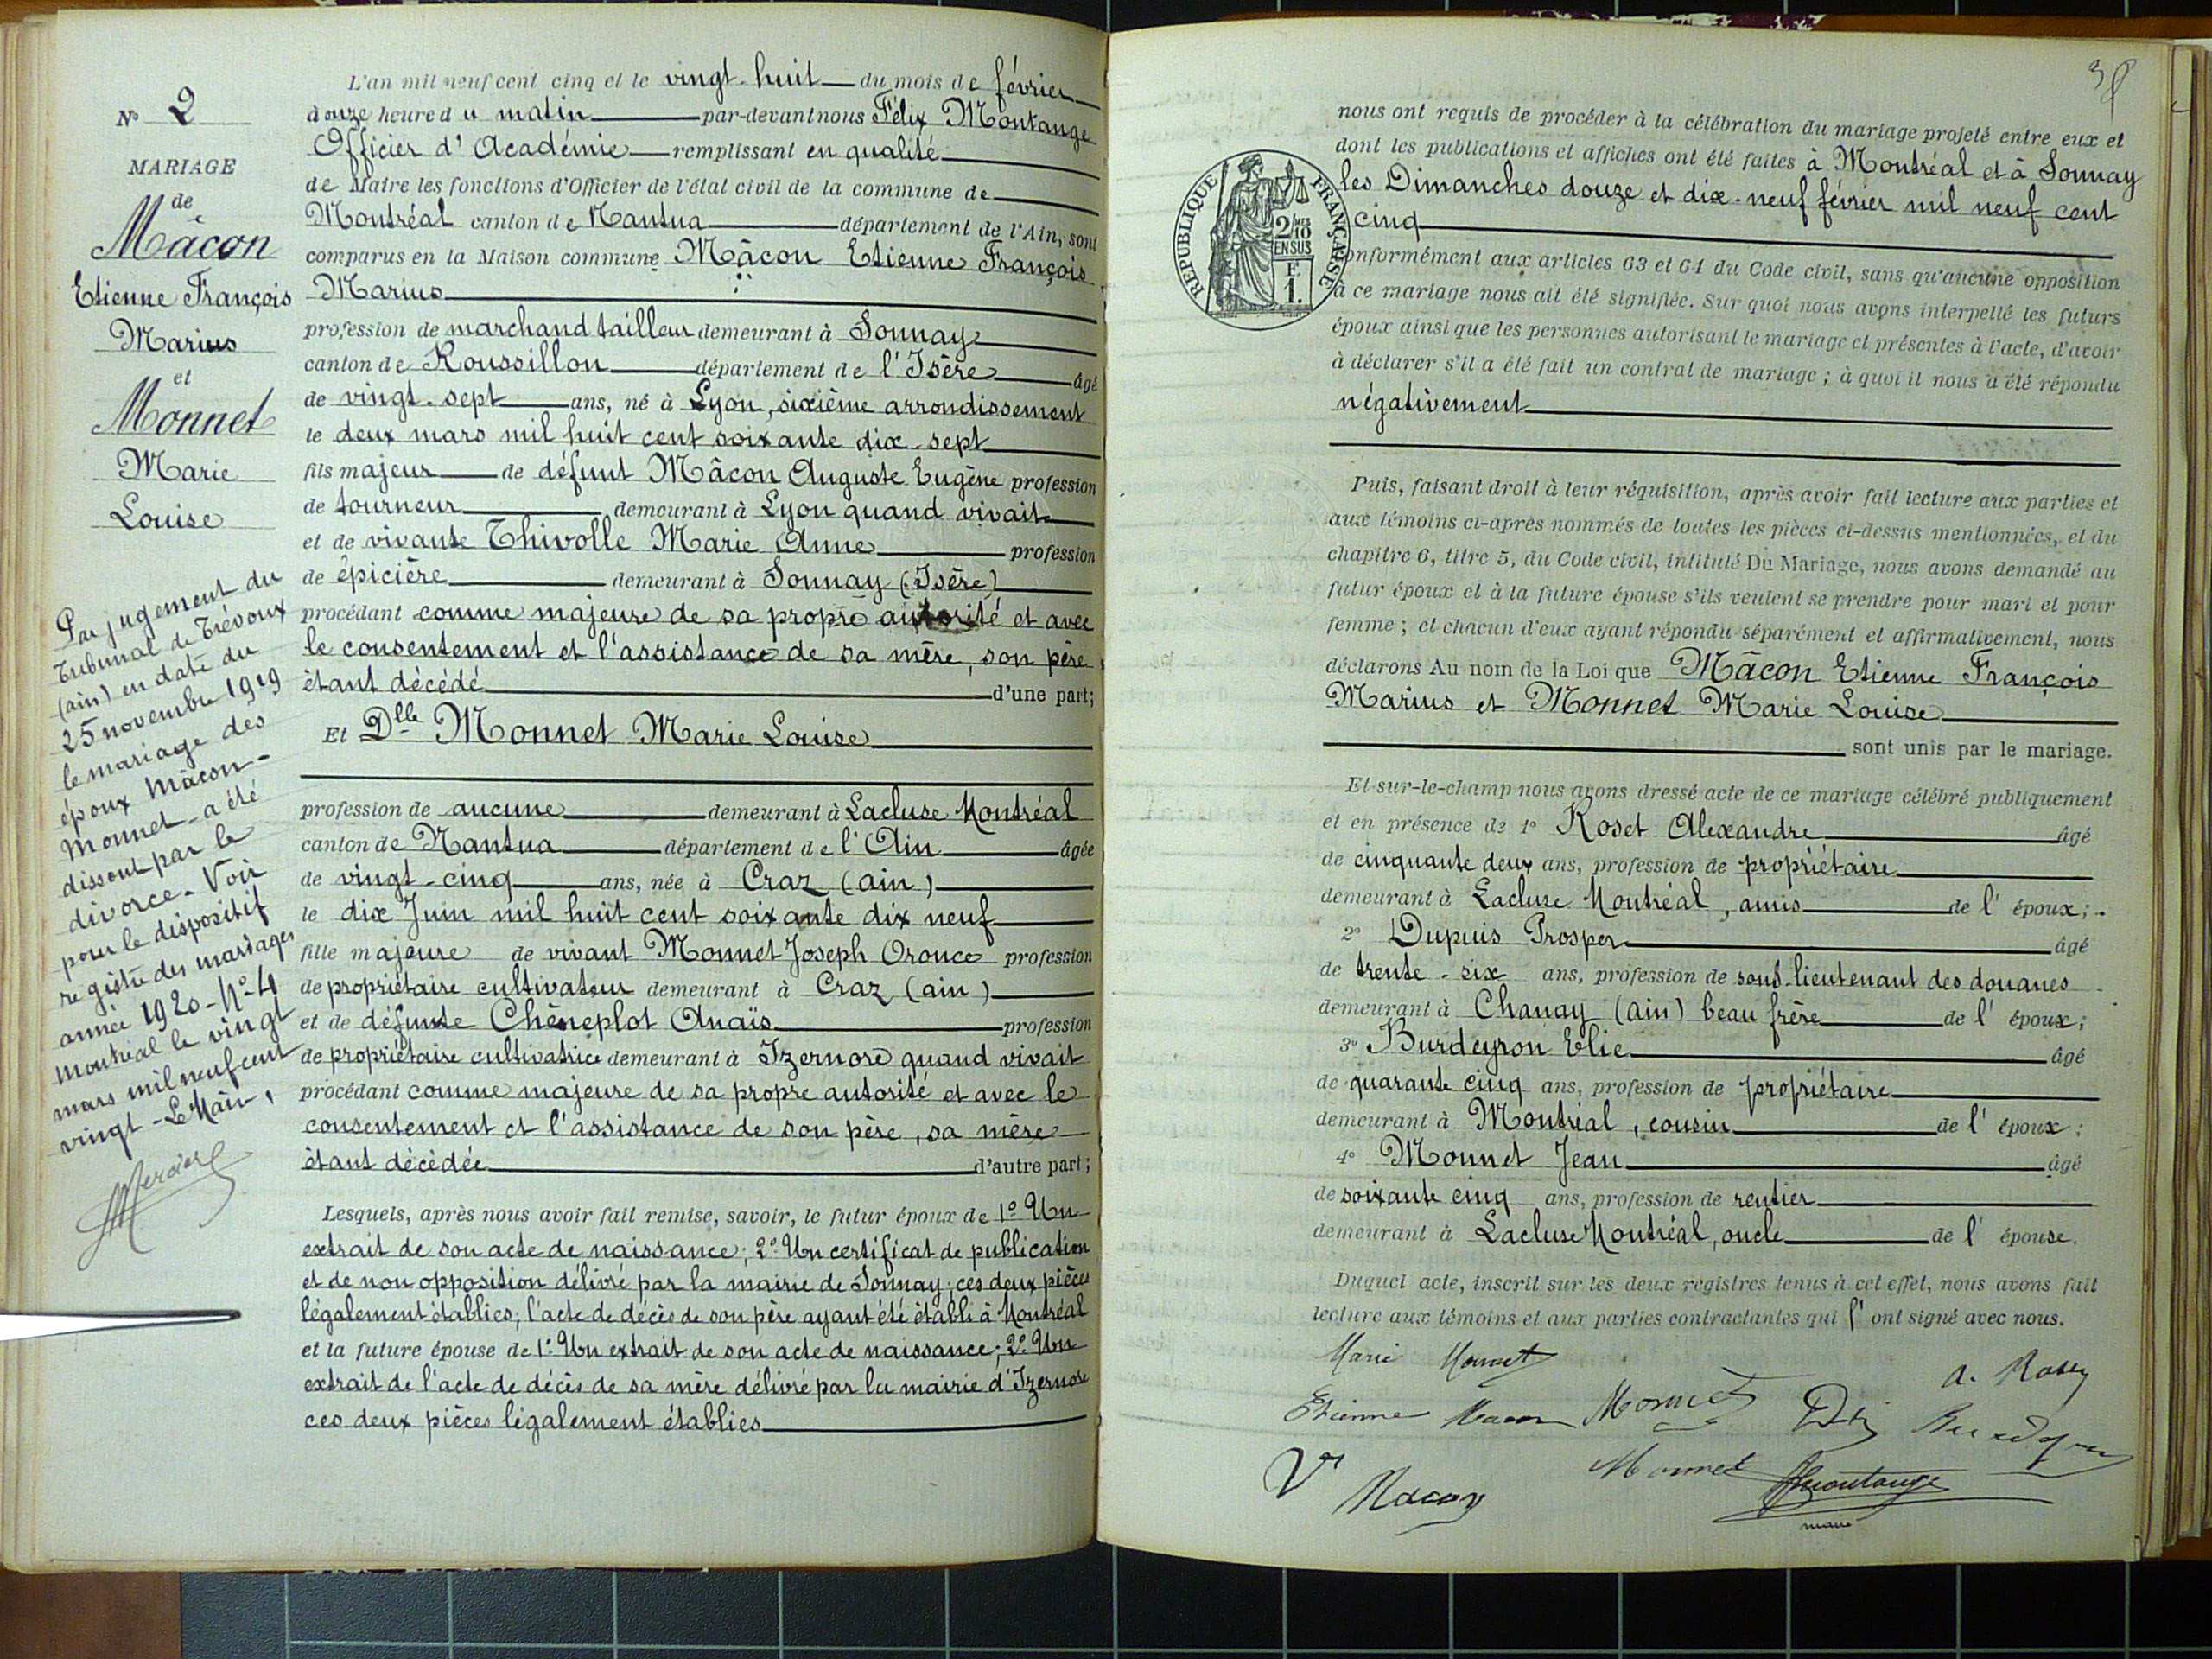 N° 2
MARIAGE
de
Mâcon
Etienne François
Marius
et
Monnet
Marie
Louise
Par jugement du
Tribunal de Trévoux
(ain) en date du
25 novembre 1919
le mariage des
époux Mâcon-
Monnet - a été
dissout par le
divorce - Voir
pour le dispositif
registre des mariages
année 1920 - N° 4
Montréal le vingt
mars mil neuf cent
vingt - Le Maire,
L'an mil neuf cent cinq et le vingt-huit du mois de février
douze heure du matin par-devant nous Félix Montange
Officier d'Académie remplissant en qualité
de Maire les fonctions d'Officier de l'état civil de la commune de
Montréal canton de Nantua département de l'Ain, sont
comparus en la Maison commune Mâcon Etienne François
Marius
profession de marchand tailleur demeurant à Sonnay
canton de Roussillon département de l'Isère âgé
de vingt-sept ans, né à Lyon, sixième arrondissement
le deux mars mil huit cent soixante dix-sept
fils majeur de défunt Mâcon Auguste Eugène profession
de tourneur demeurant à Lyon quand vivait
et de vivante Thivolle Marie Anne profession
de épicière demeurant à Sonnay (Isère)
procédant comme majeure de sa propre autorité et avec
le consentement et l'assistance de sa mère, son père
étant décédé d'une part;
Et Dlle Monnet Marie Louise
profession de aucune demeurant à Lacluse Montréal
canton de Nantua département de l'Ain âgée
de vingt-cinq ans, née à Craz (ain)
le dix Juin mil huit cent soixante dix neuf
fille majeure de vivant Monnet Joseph Oronce profession
de propriétaire cultivateur demeurant à Craz (ain)
et de défunte Chêneplot Anaïs profession
de propriétaire cultivatrice demeurant à Izernore quand vivait
procédant comme majeure de sa propre autorité et avec le
consentement et l'assistance de son père, sa mère
étant décédée d'autre part;
Lesquels, après nous avoir fait remise, savoir, le futur époux de 1° Un
extrait de son acte de naissance; 2° Un certificat de publication
et de non opposition délivré par la mairie de Sonnay; ces deux pièces
légalement établies; l'acte de décès de son père ayant été établi à Montréal
et la future épouse de 1° Un extrait de son acte de naissance; 2° Un
extrait de l'acte de décès de sa mère délivré par la mairie d'Izernore
ces deux pièces légalement établies
nous ont requis de procéder à la célébration du mariage projeté entre eux et
dont les publications et affiches ont été faites à Montréal et à Sonnay
les Dimanches douze et dix-neuf février mil neuf cent
cinq
REPUBLIQUE FRANÇAISE
2/10 EN SUS
F.
1.
conformément aux articles 63 et 64 du Code civil, sans qu'aucune opposition
à ce mariage nous ait été signifiée. Sur quoi nous avons interpellé les futurs
époux ainsi que les personnes autorisant le mariage et présentes à l'acte, d'avoir
à déclarer s'il a été fait un contrat de mariage; à quoi il nous a été répondu
négativement
Puis, faisant droit à leur réquisition, après avoir fait lecture aux parties et
aux témoins ci-après nommés de toutes les pièces ci-dessus mentionnées, et du
chapitre 6, titre 5, du Code civil, intitulé Du Mariage, nous avons demandé au
futur époux et à la future épouse s'ils veulent se prendre pour mari et pour
femme; et chacun d'eux ayant répondu séparément et affirmativement, nous
déclarons Au nom de la Loi que Mâcon Etienne François
Marius et Monnet Marie Louise
sont unis par le mariage.
Et sur-le-champ nous avons dressé acte de ce mariage célébré publiquement
et en présence de 1° Roset Alexandre âgé
de cinquante deux ans, profession de propriétaire
demeurant à Lacluse Montréal, amis de l'époux;
2° Dupuis Prosper âgé
de trente-six ans, profession de sous-lieutenant des douanes
demeurant à Chanay (ain) beau frère de l'époux;
3° Burdeyron Elie âgé
de quarante cinq ans, profession de propriétaire
demeurant à Montréal, cousin de l'époux;
4° Monnet Jean âgé
de soixante cinq ans, profession de rentier
demeurant à Lacluse Montréal, oncle de l'épouse.
Duquel acte, inscrit sur les deux registres tenus à cet effet, nous avons fait
lecture aux témoins et aux parties contractantes qui l'ont signé avec nous.
Marie Monnet
Etienne Macon Monnet
Vve Macon
Monnet
Montange
maire